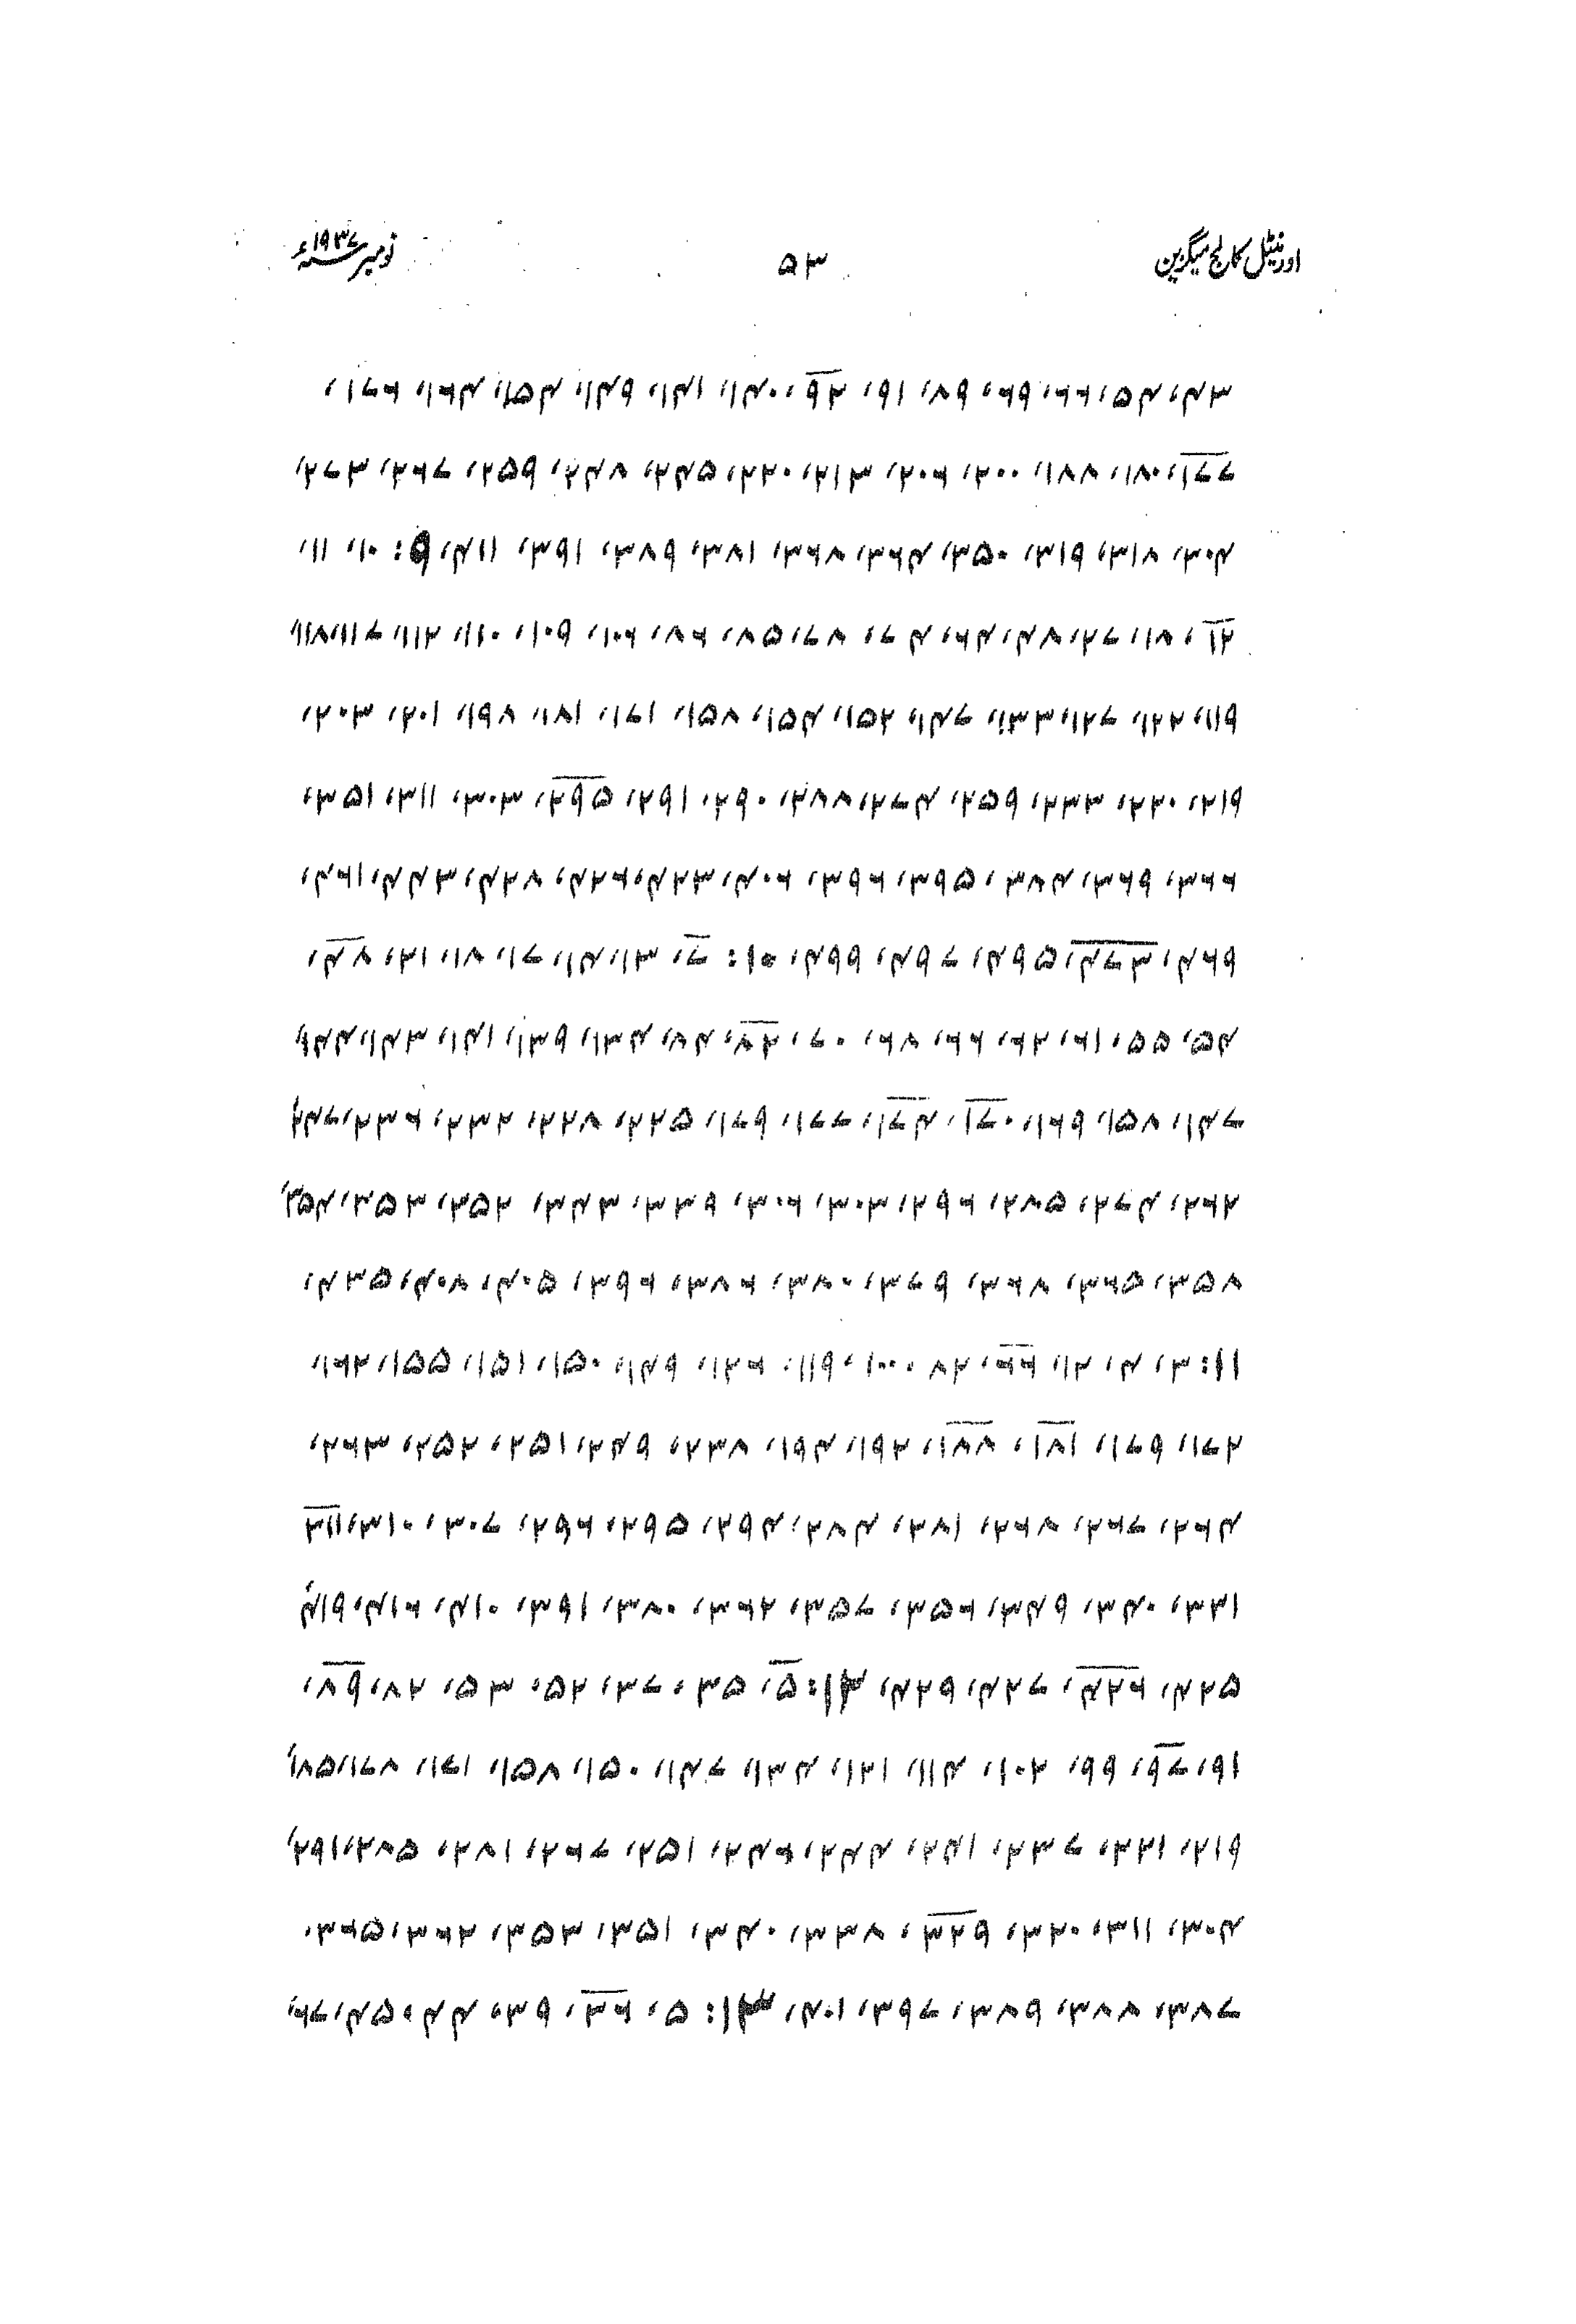 اورنٹیل کالج میگزین ۵۳ نومبر ۱۹۳۷ء
۴۳، ۵۴، ۶۶، ۶۹، ۸۹، ۹۱، ۹۲، ۱۴۰، ۱۴۱، ۱۴۹، ۱۵۴، ۱۶۴، ۱۷۶،
۱۷۷، ۱۸۰، ۱۸۸، ۲۰۰، ۲۰۶، ۲۱۳، ۲۲۰، ۲۴۵، ۲۴۸، ۲۵۹، ۲۶۷، ۲۷۳،
۳۰۴، ۳۱۸، ۳۱۹، ۳۵۰، ۳۶۴، ۳۶۸، ۳۸۱، ۳۸۹، ۳۹۱، ۴۱۱، ۹: ۱۰، ۱۱،
۱۲، ۱۸، ۲۷، ۴۸، ۶۴، ۷۴، ۷۸، ۸۵، ۸۶، ۱۰۶، ۱۰۹، ۱۱۰، ۱۱۲، ۱۱۷، ۱۱۸،
۱۱۹، ۱۲۲، ۱۲۷، ۱۳۳، ۱۴۷، ۱۵۲، ۱۵۴، ۱۵۸، ۱۷۱، ۱۸۱، ۱۹۸، ۲۰۱، ۲۰۳،
۲۱۹، ۲۲۰، ۲۳۳، ۲۵۹، ۲۷۴، ۲۸۸، ۲۹۰، ۲۹۱، ۲۹۵، ۳۰۳، ۳۱۱، ۳۵۱،
۳۶۶، ۳۶۹، ۳۸۴، ۳۹۵، ۳۹۶، ۴۰۶، ۴۲۳، ۴۲۶، ۴۲۸، ۴۴۳، ۴۶۱،
۴۶۹، ۴۷۳، ۴۹۵، ۴۹۷، ۴۹۹، ۱۰: ۷، ۱۳، ۱۴، ۱۷، ۱۸، ۲۱، ۴۸،
۵۴، ۵۵، ۶۱، ۶۲، ۶۶، ۶۸، ۷۰، ۸۲، ۸۴، ۱۳۴، ۱۳۹، ۱۴۱، ۱۴۳، ۱۴۴،
۱۴۷، ۱۵۸، ۱۶۹، ۱۷۰، ۱۷۴، ۱۷۷، ۱۷۹، ۲۲۵، ۲۲۸، ۲۳۲، ۲۳۶، ۲۴۷،
۲۶۲، ۲۷۴، ۲۸۵، ۲۹۶، ۳۰۳، ۳۰۶، ۳۳۹، ۳۴۳، ۳۵۲، ۳۵۳، ۳۵۴،
۳۵۸، ۳۶۵، ۳۶۸، ۳۷۹، ۳۸۰، ۳۸۶، ۳۹۶، ۴۰۵، ۴۰۸، ۴۳۵،
۱۱: ۳، ۴، ۱۲، ۶۶، ۸۲، ۱۰۰، ۱۱۹، ۱۲۶، ۱۴۹، ۱۵۰، ۱۵۱، ۱۵۵، ۱۶۲،
۱۷۲، ۱۷۹، ۱۸۱، ۱۸۸، ۱۹۲، ۱۹۴، ۲۳۸، ۲۴۹، ۲۵۱، ۲۵۲، ۲۶۳،
۲۶۴، ۲۶۷، ۲۶۸، ۲۸۱، ۲۸۴، ۲۹۴، ۲۹۵، ۲۹۶، ۳۰۷، ۳۱۰، ۳۱۱
۳۳۱، ۳۴۰، ۳۴۹، ۳۵۶، ۳۵۷، ۳۶۲، ۳۸۰، ۳۹۱، ۴۱۰، ۴۱۶، ۴۱۹،
۴۲۵، ۴۲۶، ۴۲۷، ۴۲۹، ۱۲: ۵، ۳۵، ۳۷، ۵۲، ۵۳، ۸۲، ۸۹،
۹۱، ۹۷، ۹۹، ۱۰۲، ۱۱۴، ۱۲۱، ۱۳۴، ۱۴۷، ۱۵۰، ۱۵۸، ۱۷۱، ۱۷۸، ۱۸۵،
۲۱۹، ۲۲۱، ۲۳۷، ۲۴۱، ۲۴۴، ۲۴۶، ۲۵۱، ۲۶۷، ۲۸۱، ۲۸۵، ۲۹۱،
۳۰۴، ۳۱۱، ۳۲۰، ۳۲۹، ۳۳۸، ۳۴۰، ۳۵۱، ۳۵۳، ۳۶۲، ۳۶۵،
۳۸۷، ۳۸۸، ۳۸۹، ۳۹۷، ۴۰۱، ۱۳: ۵، ۳۶، ۳۹، ۴۴، ۴۵، ۶۷،